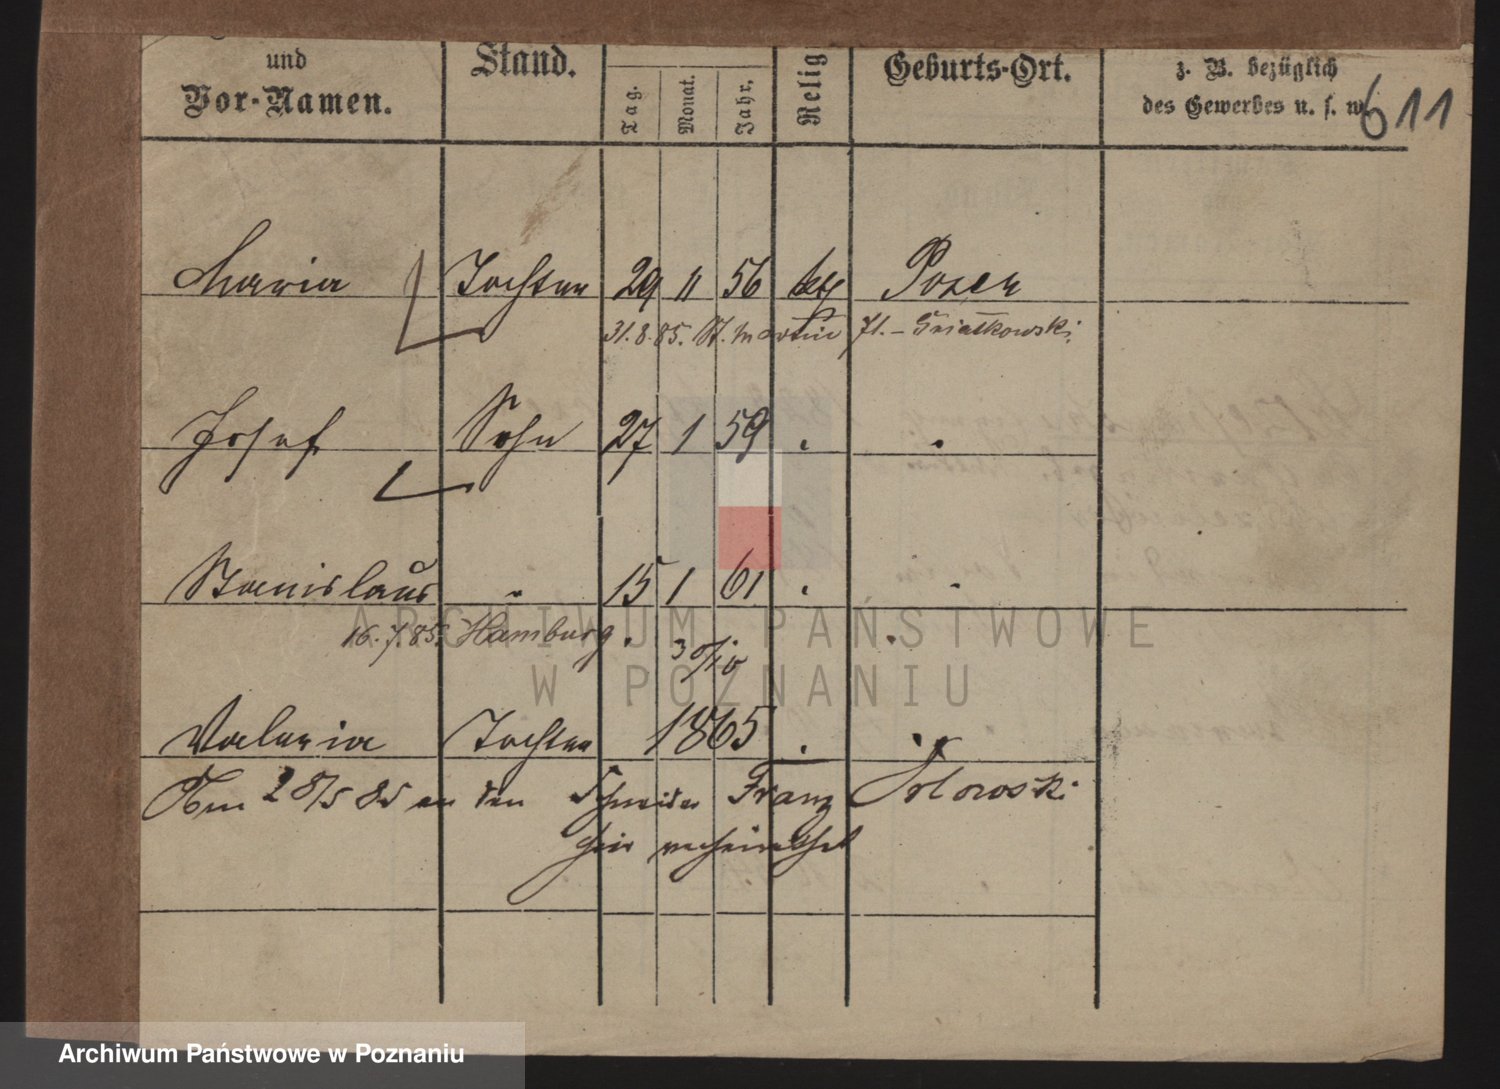 und
Vor-Namen.
Stand.
Tag.
Monat.
Jahr.
Relig
Geburts-Ort.
z. B. bezüglich
des Gewerbes u. s. w.
611
Maria Tochter 29 11 56 kath Posen
31.8.85. St. Martin 71. –
Josef Sohn 27 1 59 . .
Stanislaus " 15 1 61 . .
16.7.85. Hamburg.
30/10
Valeria Tochter 1865 . .
Am 28/5 85 an den Schneider Franz
hier verheirathet
ARCHIWUM PAŃSTWOWE
W POZNANIU
Archiwum Państwowe w Poznaniu